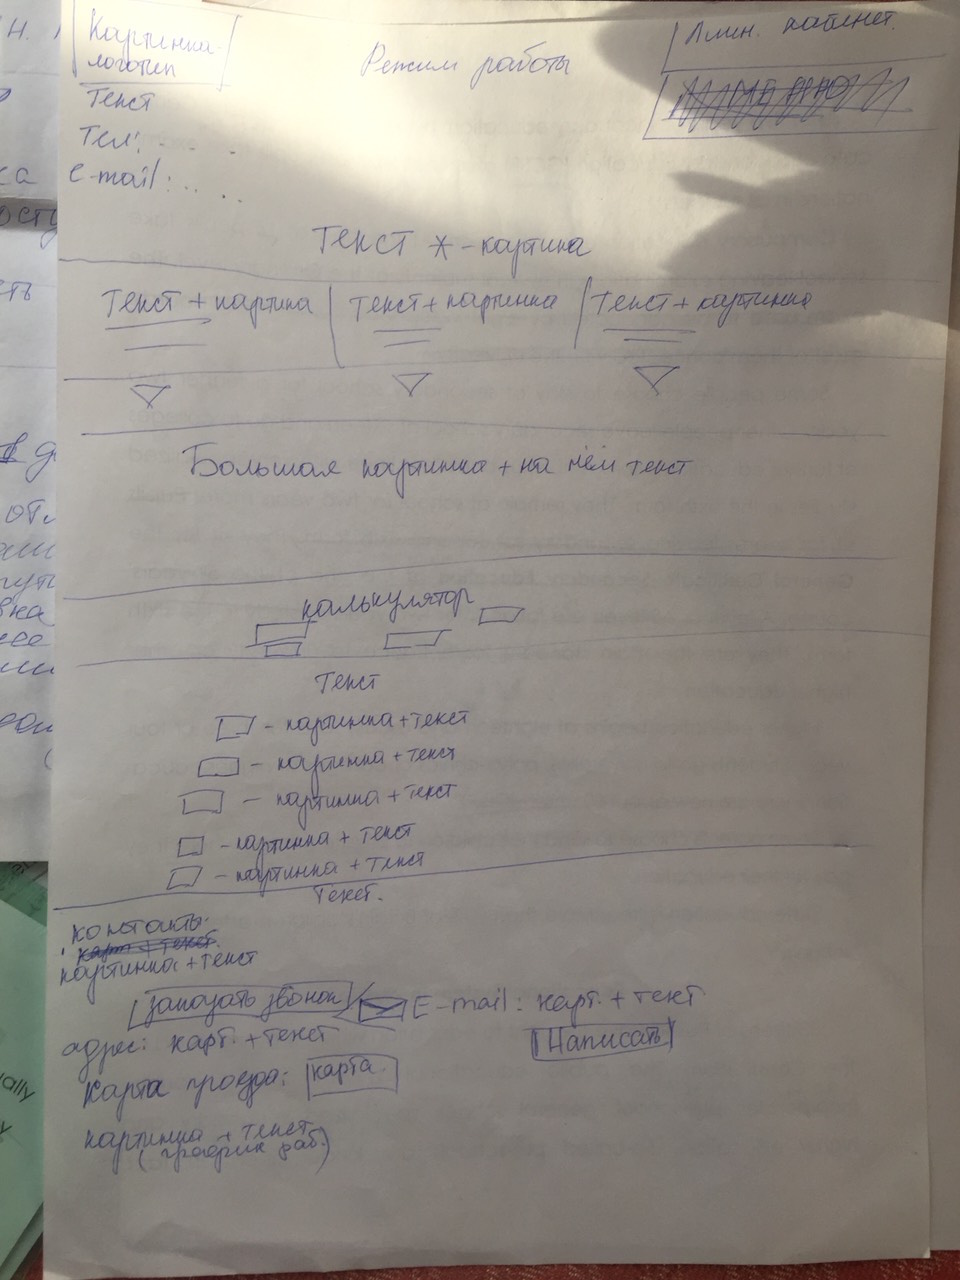 Картинка-
логотип
Режим работы
Личн. кабинет.
Текст
Тел:
e-mail:..
Текст * - картина
Текст + картина
Текст + картинка
Текст + картинка
Большая картинка + на нём текст
Калькулятор
Текст
- картинка + текст
- картинка + текст
- картинка + текст
- картинка + текст
- картинка + текст
Текст.
контакты:
картинка + текст
заказать звонок
E-mail: карт. + текст
адрес: карт. + текст
Написать
Карта проезда:
карта
картинка + текст
(график раб.)